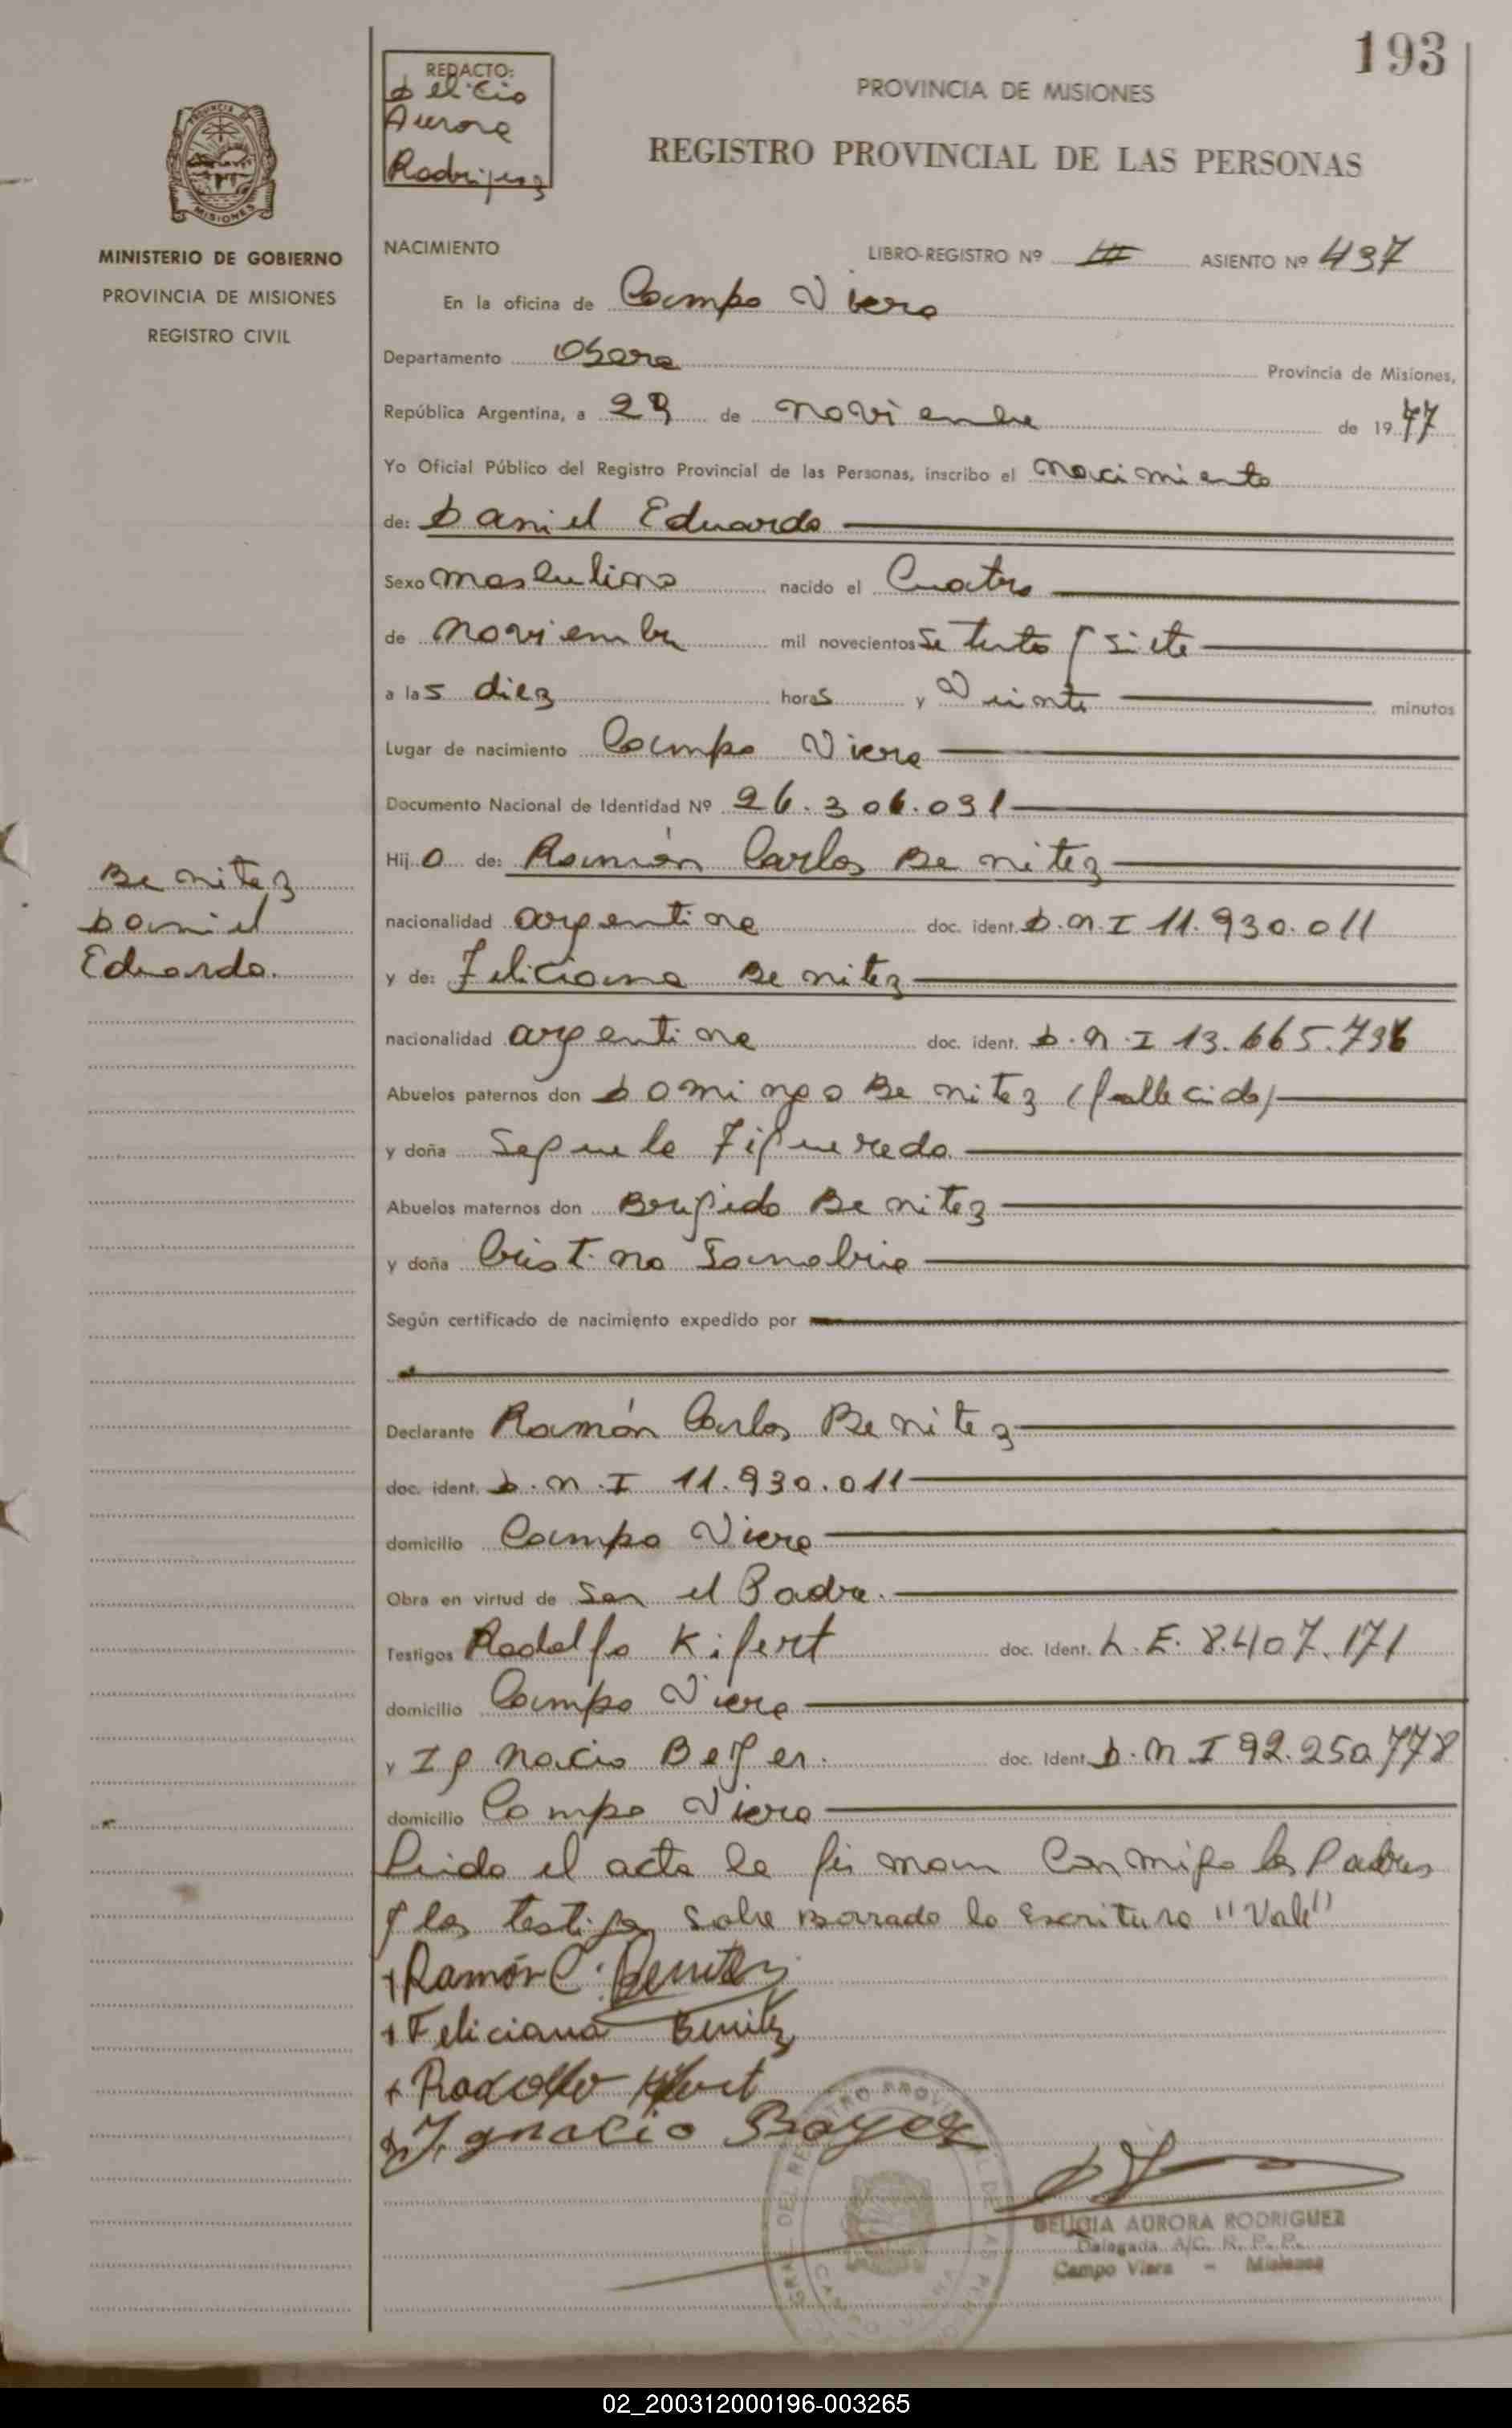 193
REDACTO:
Delicia
Aurora
Rodriguez
PROVINCIA DE MISIONES
REGISTRO PROVINCIAL DE LAS PERSONAS
MISIONES
MINISTERIO DE GOBIERNO
PROVINCIA DE MISIONES
REGISTRO CIVIL
NACIMIENTO LIBRO-REGISTRO Nº III ASIENTO Nº 437
En la oficina de Campo Viera
Departamento Obera Provincia de Misiones,
República Argentina, a 29 de noviembre de 1977
Yo Oficial Público del Registro Provincial de las Personas, inscribo el nacimiento
de: Daniel Eduardo
Sexo masculino nacido el Cuatro
de noviembre mil novecientos setenta y siete
a las diez horas y Veinte minutos
Lugar de nacimiento Campo Viera
Documento Nacional de Identidad Nº 26.306.031
Hijo de: Ramón Carlos Benitez
Benitez
Daniel
Eduardo.
nacionalidad argentina doc. ident. D.N.I 11.930.011
y de: Feliciana Benitez
nacionalidad argentina doc. ident. D.N.I 13.665.736
Abuelos paternos don Domingo Benitez (fallecido)
y doña Segunda Figueredo
Abuelos maternos don Brigido Benitez
y doña Cristina Sanabria
Según certificado de nacimiento expedido por
Declarante Ramón Carlos Benitez
doc. ident. D.N.I 11.930.011
domicilio Campo Viera
Obra en virtud de Ser el Padre.
Testigos Rodolfo Kifert doc. Ident. L.E. 8.407.171
domicilio Campo Viera
y Ignacio Beger. doc. Ident. D.N.I 92.250.778
domicilio Campo Viera
Leida el acta la firman Conmigo los Padres
y los testigos Sobre Borrado lo Escrituro "Vale"
Ramón C. Benitez
Feliciana Benitez
Rodolfo Kifert
Ignacio Boyer
DELICIA AURORA RODRIGUEZ
Delegada A/C. R. P. P.
Campo Viera - Misiones
02_200312000196-003265